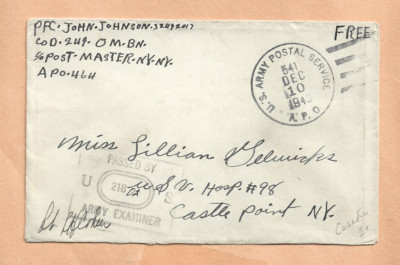 PFC. JOHN. JOHNSON. 32491017
CO D. 249. Q M. BN.
℅ POST-MASTER. NY. NY.
APO. 464
FREE
U.S. ARMY POSTAL SERVICE
541
DEC
10
1943
A.P.O.
Miss Lillian Gelwicks
U S V. Hosp. #98
Castle Point NY.
PASSED BY
U S
218
ARMY EXAMINER